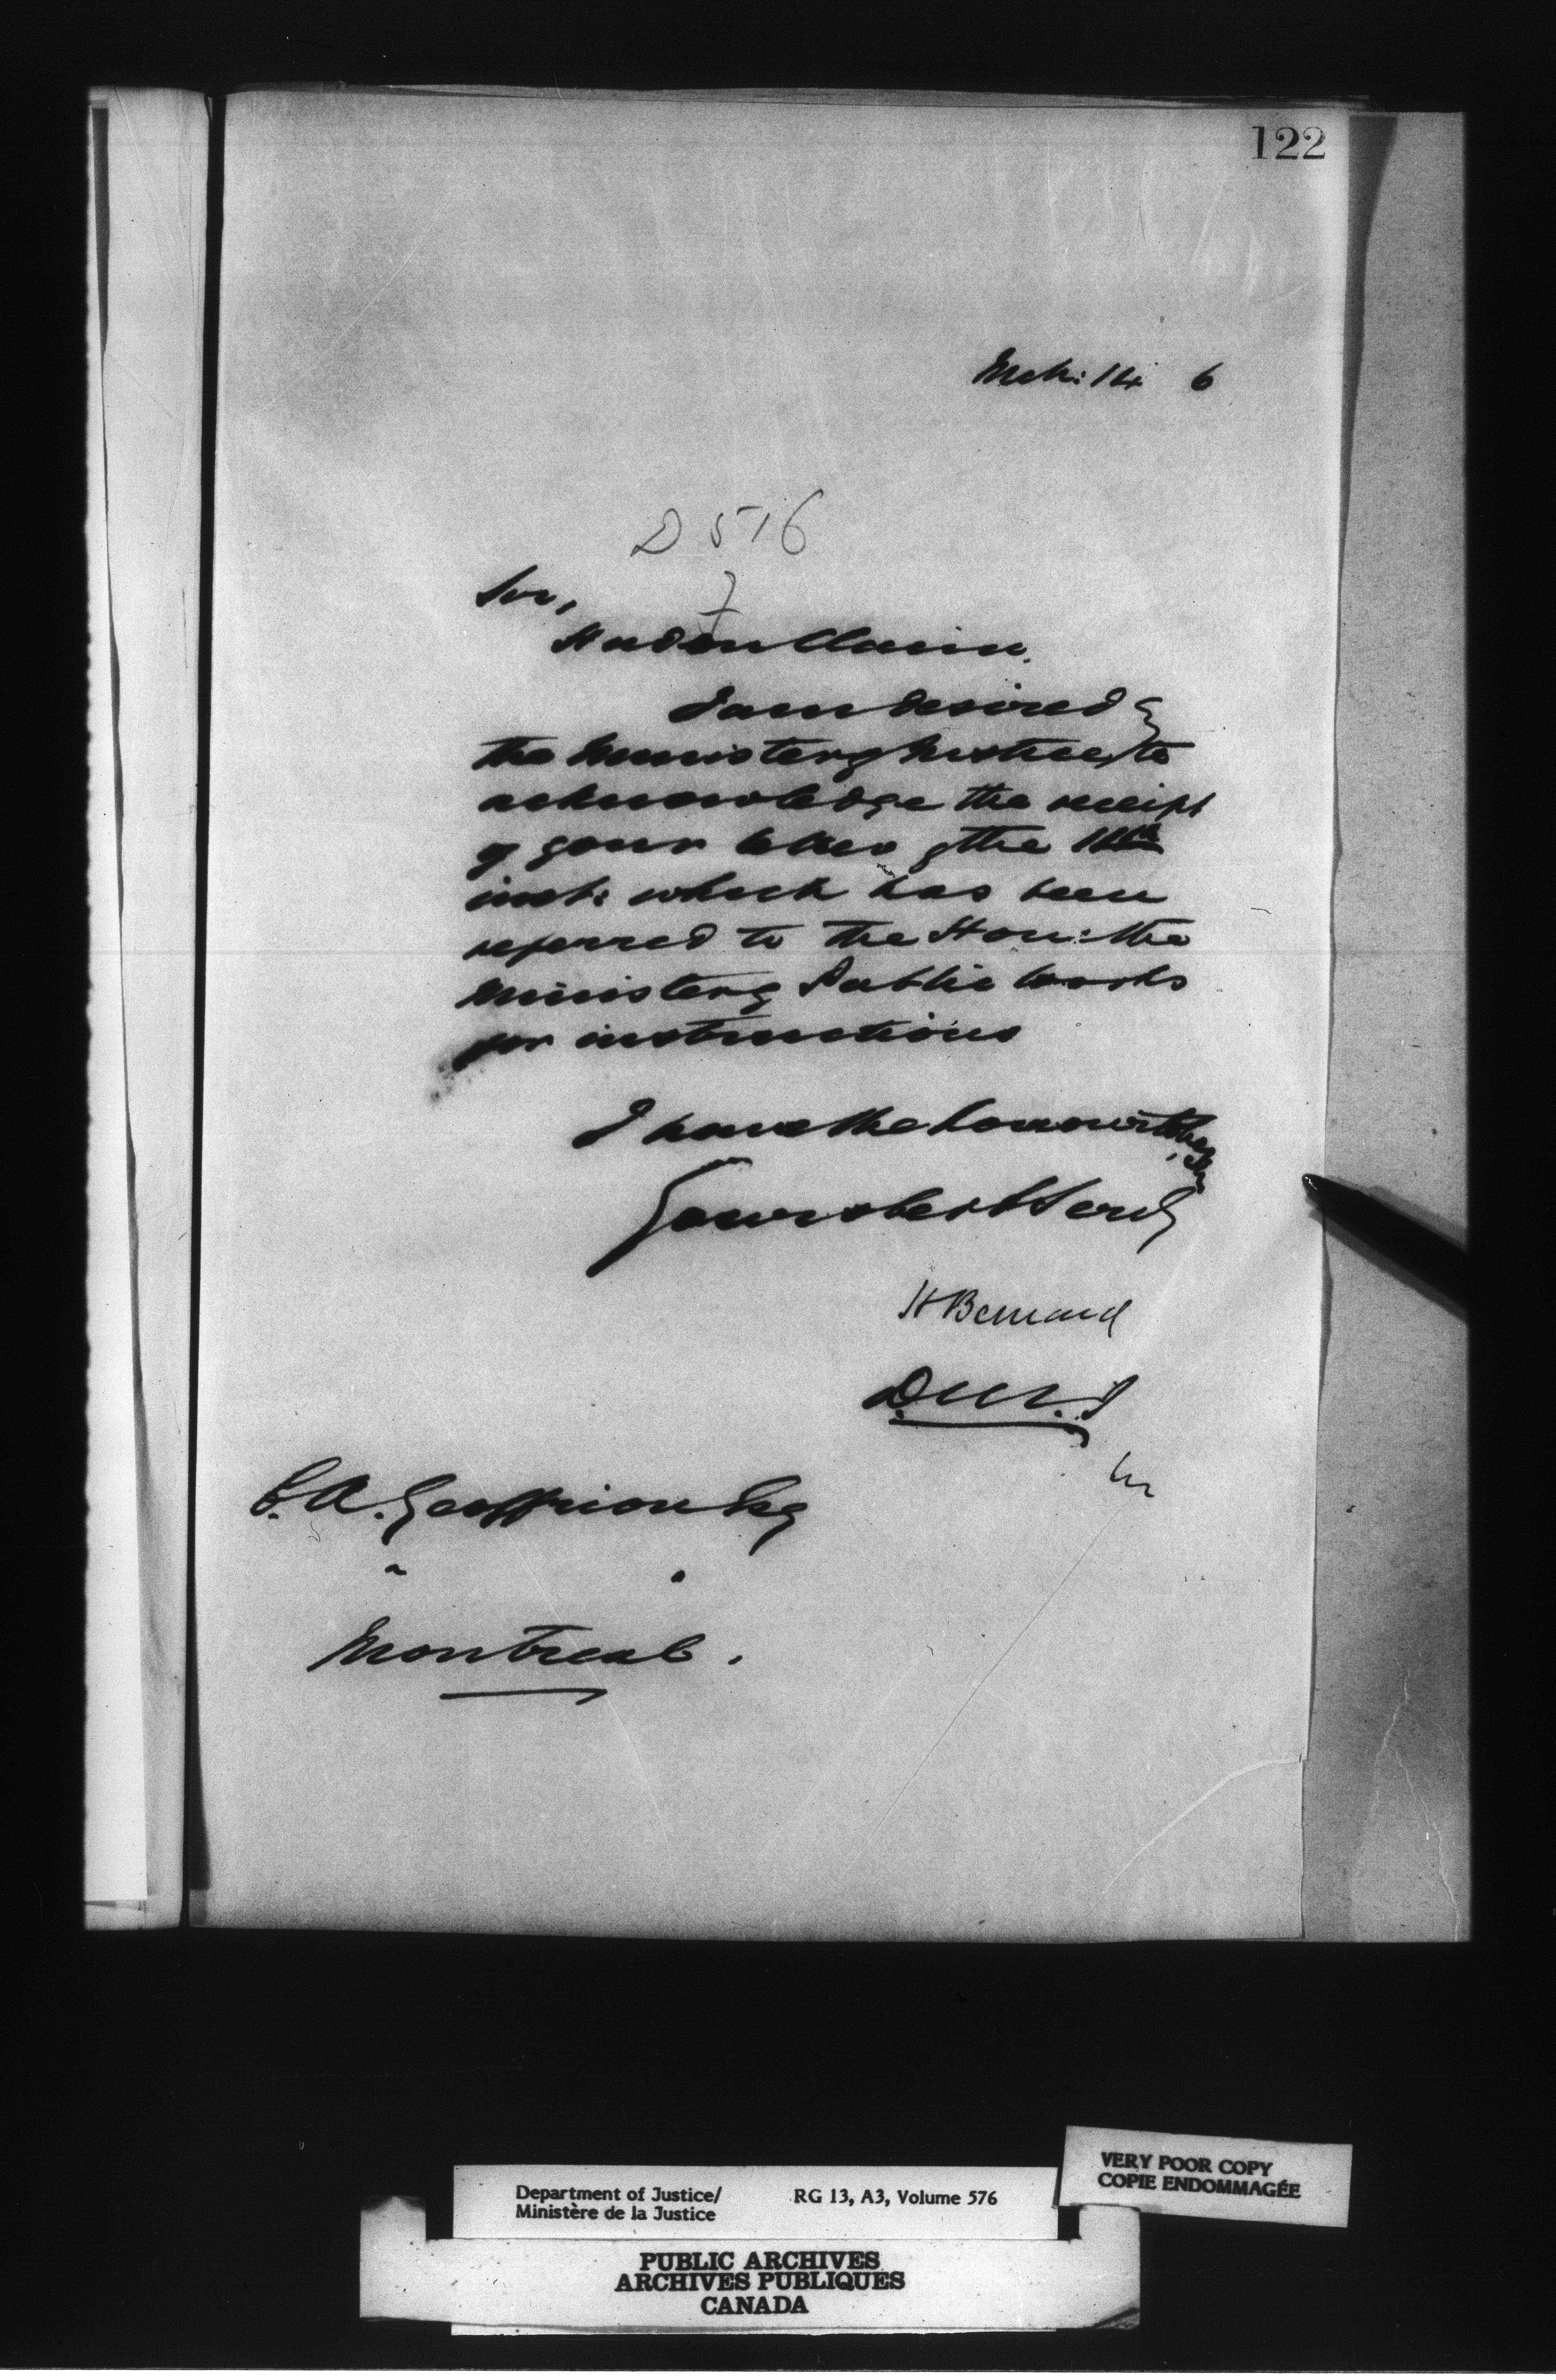 122
Mch: 14 6
D 516
7
Sir,
Hudon Claim.
I am desired by
the Minister of Justice, to
acknowledge the receipt
of your letter of the 11th
inst: which has been
referred to the Hon: the
Minister of Public Works
for instructions
I have the honour to be,
Sir,
Your obedt Servt
H Bernard
D.M.J
C. A. Geoffrion Esq
Montreal.
VERY POOR COPY
COPIE ENDOMMAGÉE
Department of Justice/ RG 13, A3, Volume 576
Ministère de la Justice
PUBLIC ARCHIVES
ARCHIVES PUBLIQUES
CANADA